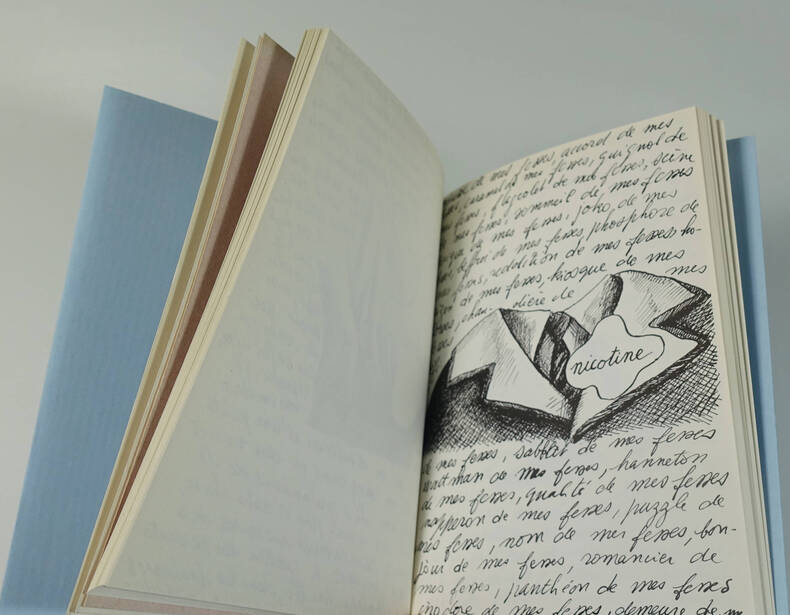 de mes fesses, accord de mes
caramel de mes fesses, guignol de
flageolet de mes fesses, scène
mes fesses, sommeil de mes fesses
de mes fesses, joko de mes
de mes fesses, phosphore de
reddition de mes fesses, ho-
de mes fesses, kiosque de mes
dière de mes
nicotine
de mes fesses, sabbat de mes fesses
wattman de mes fesses, hanneton
de mes fesses, qualité de mes fesses
napperon de mes fesses, puzzle de
mes fesses, nom de mes fesses, bon-
jour de mes fesses, romancier de
mes fesses, panthéon de mes fesses
inodore de mes fesses, demeure de m